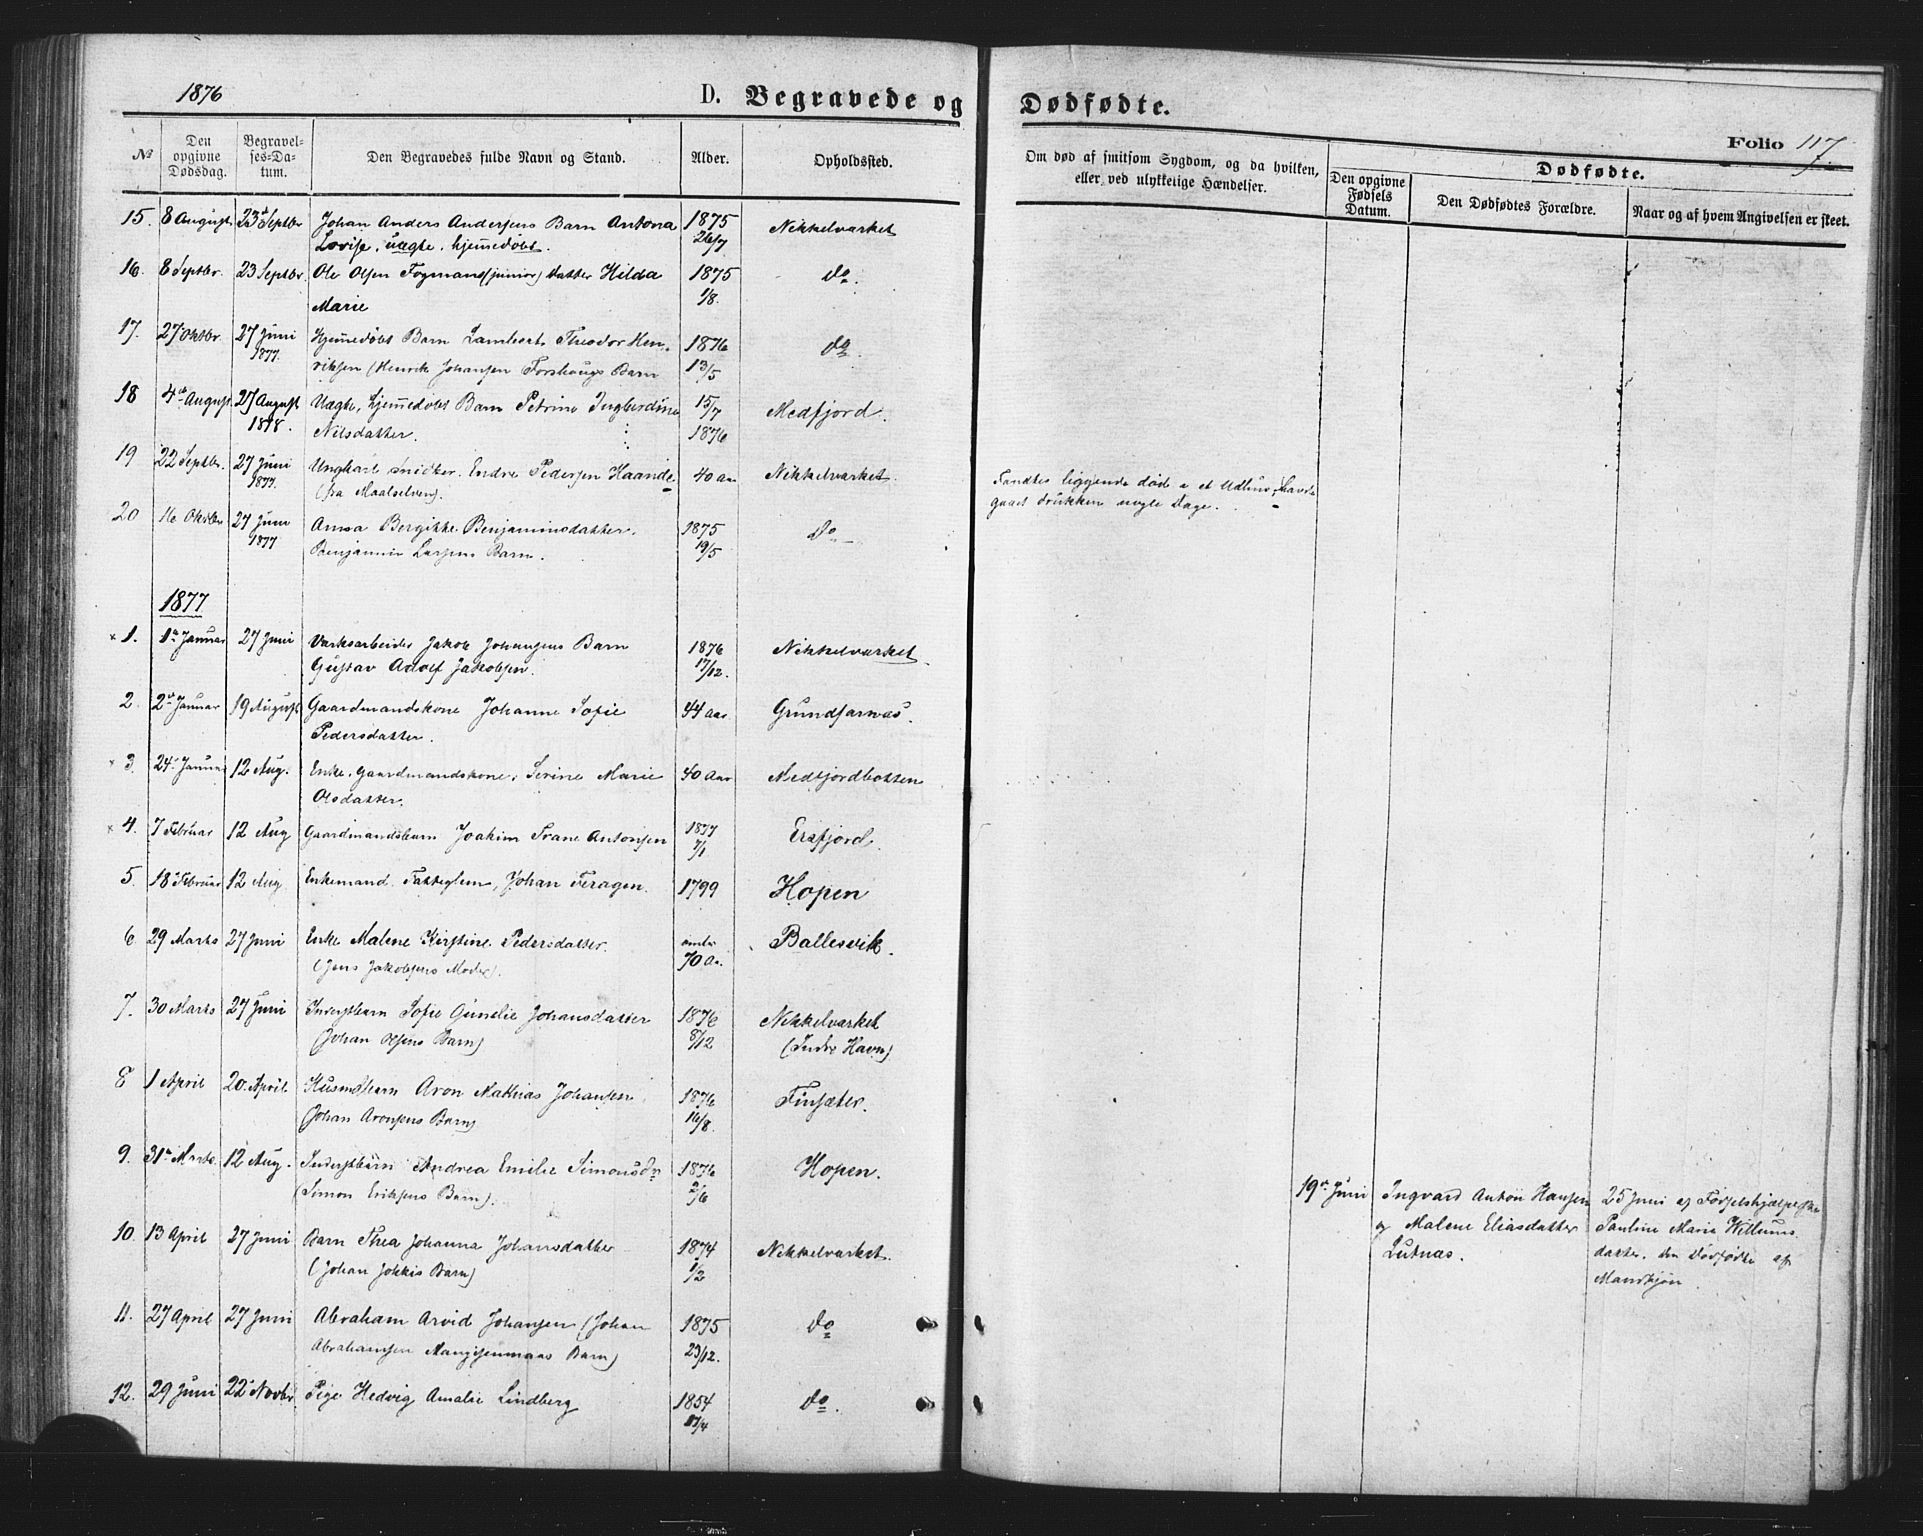 1876
D. Begravede og
№
Den opgivne Dødsdag.
Begravelses-Datum.
Den Begravedes fulde Navn og Stand.
Alder.
Opholdssted.
15. 8 August 23de Septbr Johan Anders Andersens Barn Antona 1875 Nikkelværket
Lovise, uægte, hjemmedøbt. 26/7
16. 8 Septbr. 23 Septbr. Ole Olsen Fogmans (junior) Datter Hilda 1875 Do
Marie 1/8.
17. 27 Oktbr. 27 Juni Hjemmedøbt Barn Lambert Theodor Hen- 1876 Do
1877. riksen (Henrik Johansen Forshaugs Barn 13/5
18 4de August 27 August Uægte, hjemmedøbt Barn Petrine Ingberdine 15/7 Medfjord.
1878. Nilsdatter. 1876
19 22 Septbr. 27 Juni Ungkarl Snidker Endre Pedersen Haande 40 Aar Nikkelværket
1877. (fra Maalselven).
20 16 Oktbr 27 Juni Anna Bergitte Benjaminsdatter. 1875 Do
1877 Benjamin Larsens Barn. 19/5
1877
× 1. 1ste Januar 27 Juni Værksarbeider Jakob Johansens Barn 1876 Nikkelværket.
Gustav Adolf Jakobsen. 17/12.
2. 2den Januar 19 August Gaardmandskone Johanne Sofie 44 Aar Grundfarnæs.
Pedersdatter.
× 3. 24de Januar 12 Aug. Enke, Gaardmandskone, Serine Marie 40 Aar Medfjordbotten
Olsdatter.
× 4. 7 Februar 12 Aug Gaardmandsbarn Joakim Trane Antonsen 1877 Ersfjord.
7/1
5. 18 Februar 12 Aug Enkemand. Fattiglem, Johan Feragen. 1799 Hopen
6 29 Marts 27 Juni Enke Malene Kirstine Pedersdatter. Ballesvik.
(Jens Jakobsens Moder). 70 Aar
7. 30 Marts 27 Juni Inderstbarn Sofie Gunelie Johansdatter 1876 Nikkelværket
(Johan Olsens Barn) 8/12 (Indre Havn)
8 1 April 20. April. Husmdsbarn Aron Mathias Johansen 1876 Finsæter.
(Johan Aronsens Barn) 16/8.
9. 31te Marts. 12 Aug. Inderstbarn Andrea Emilie Simonsdr 1876 Hopen.
(Simon Eriksens Barn). 2/6
10. 13 April 27 Juni Barn Thea Johanna Johansdatter 1874 Nikkelværket.
(Johan Jokkis Barn) 1/2
11. 27 April 27 Juni Abraham Arvid Johansen (Johan 1875 Do
Abrahamsen Barn) 23/12.
12. 29 Juni 22 Novbr Pige Hedvig Amalie Lindberg 1854 Do.
17/4
Dødfødte.
Folio 117.
Om død af smitsom Sygdom, og da hvilken,
eller ved ulykkelige Hændelser.
Dødfødte.
Den opgivne Fødsels Datum.
Den Dødfødtes Forældre.
Naar og af hvem Angivelsen er skeet.
Fandtes liggende død i et Udhuus, havde
gaaet drukken nogle Dage.
19de Juni Ingvard Anton Hansen 25 Juni af Fødselshjælperske
og Malene Eliasdatter Pauline Marie Willums-
Lutnæs. datter. den Dødfødte af
Mandkjøn.